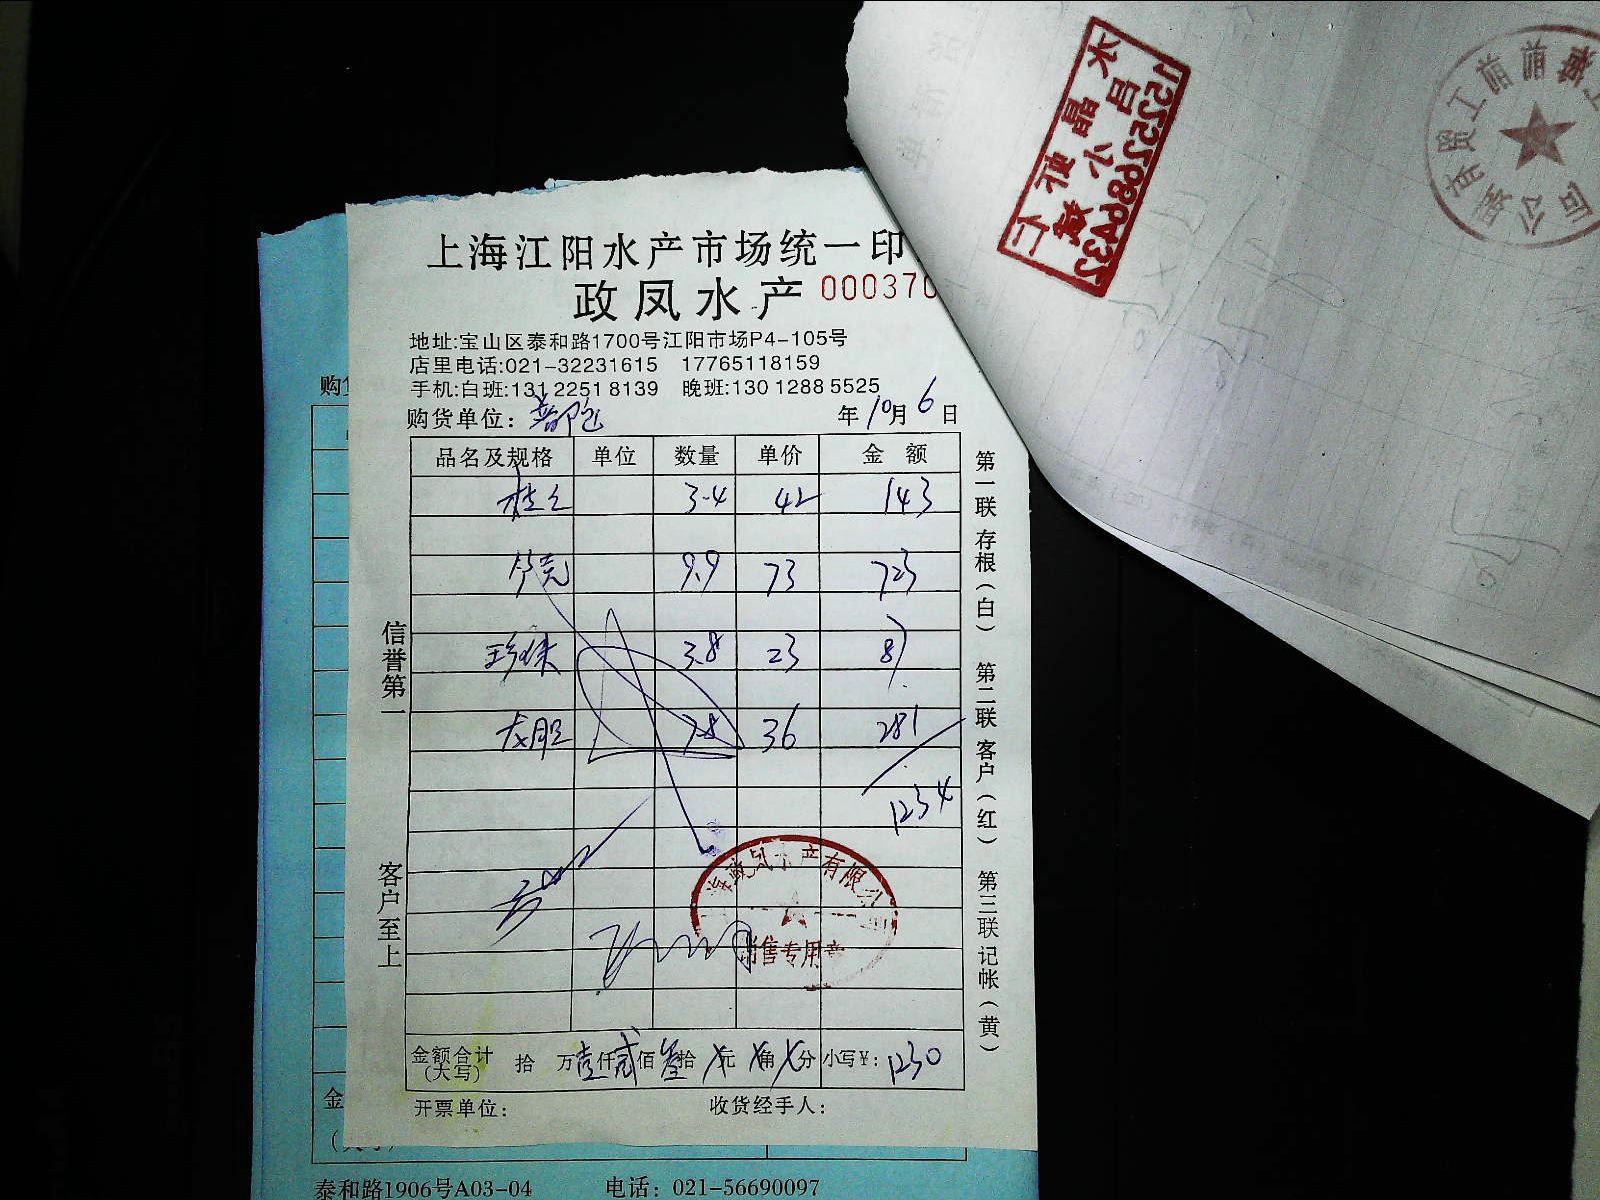 上海江阳水产市场统一印
政凤水产 000370
地址:宝山区泰和路1700号江阳市场P4-105号
店里电话:021-32231615 17765118159
手机:白班:131 2251 8139 晚班:130 1288 5525
购货单位:
年10月6日
品名及规格 单位 数量 单价 金额
3.4 42 143
9.9 73 723
珍珠 3.8 23 87
龙胆 7.8 36 281
1234
海政凤水产有限公司
销售专用章
金额合计 拾 万壹仟贰佰叁拾 元 角 分 小写¥: 1230
(大写)
开票单位: 收货经手人:
信誉第一
客户至上
第一联存根(白) 第二联客户(红) 第三联记帐(黄)
购货
金
泰和路1906号A03-04 电话: 021-56690097
15225989432